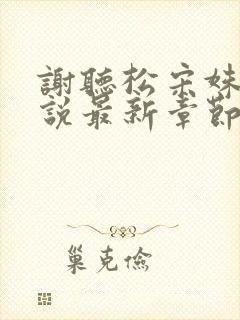 謝聽松宋妹
說最新章節
巢克儉